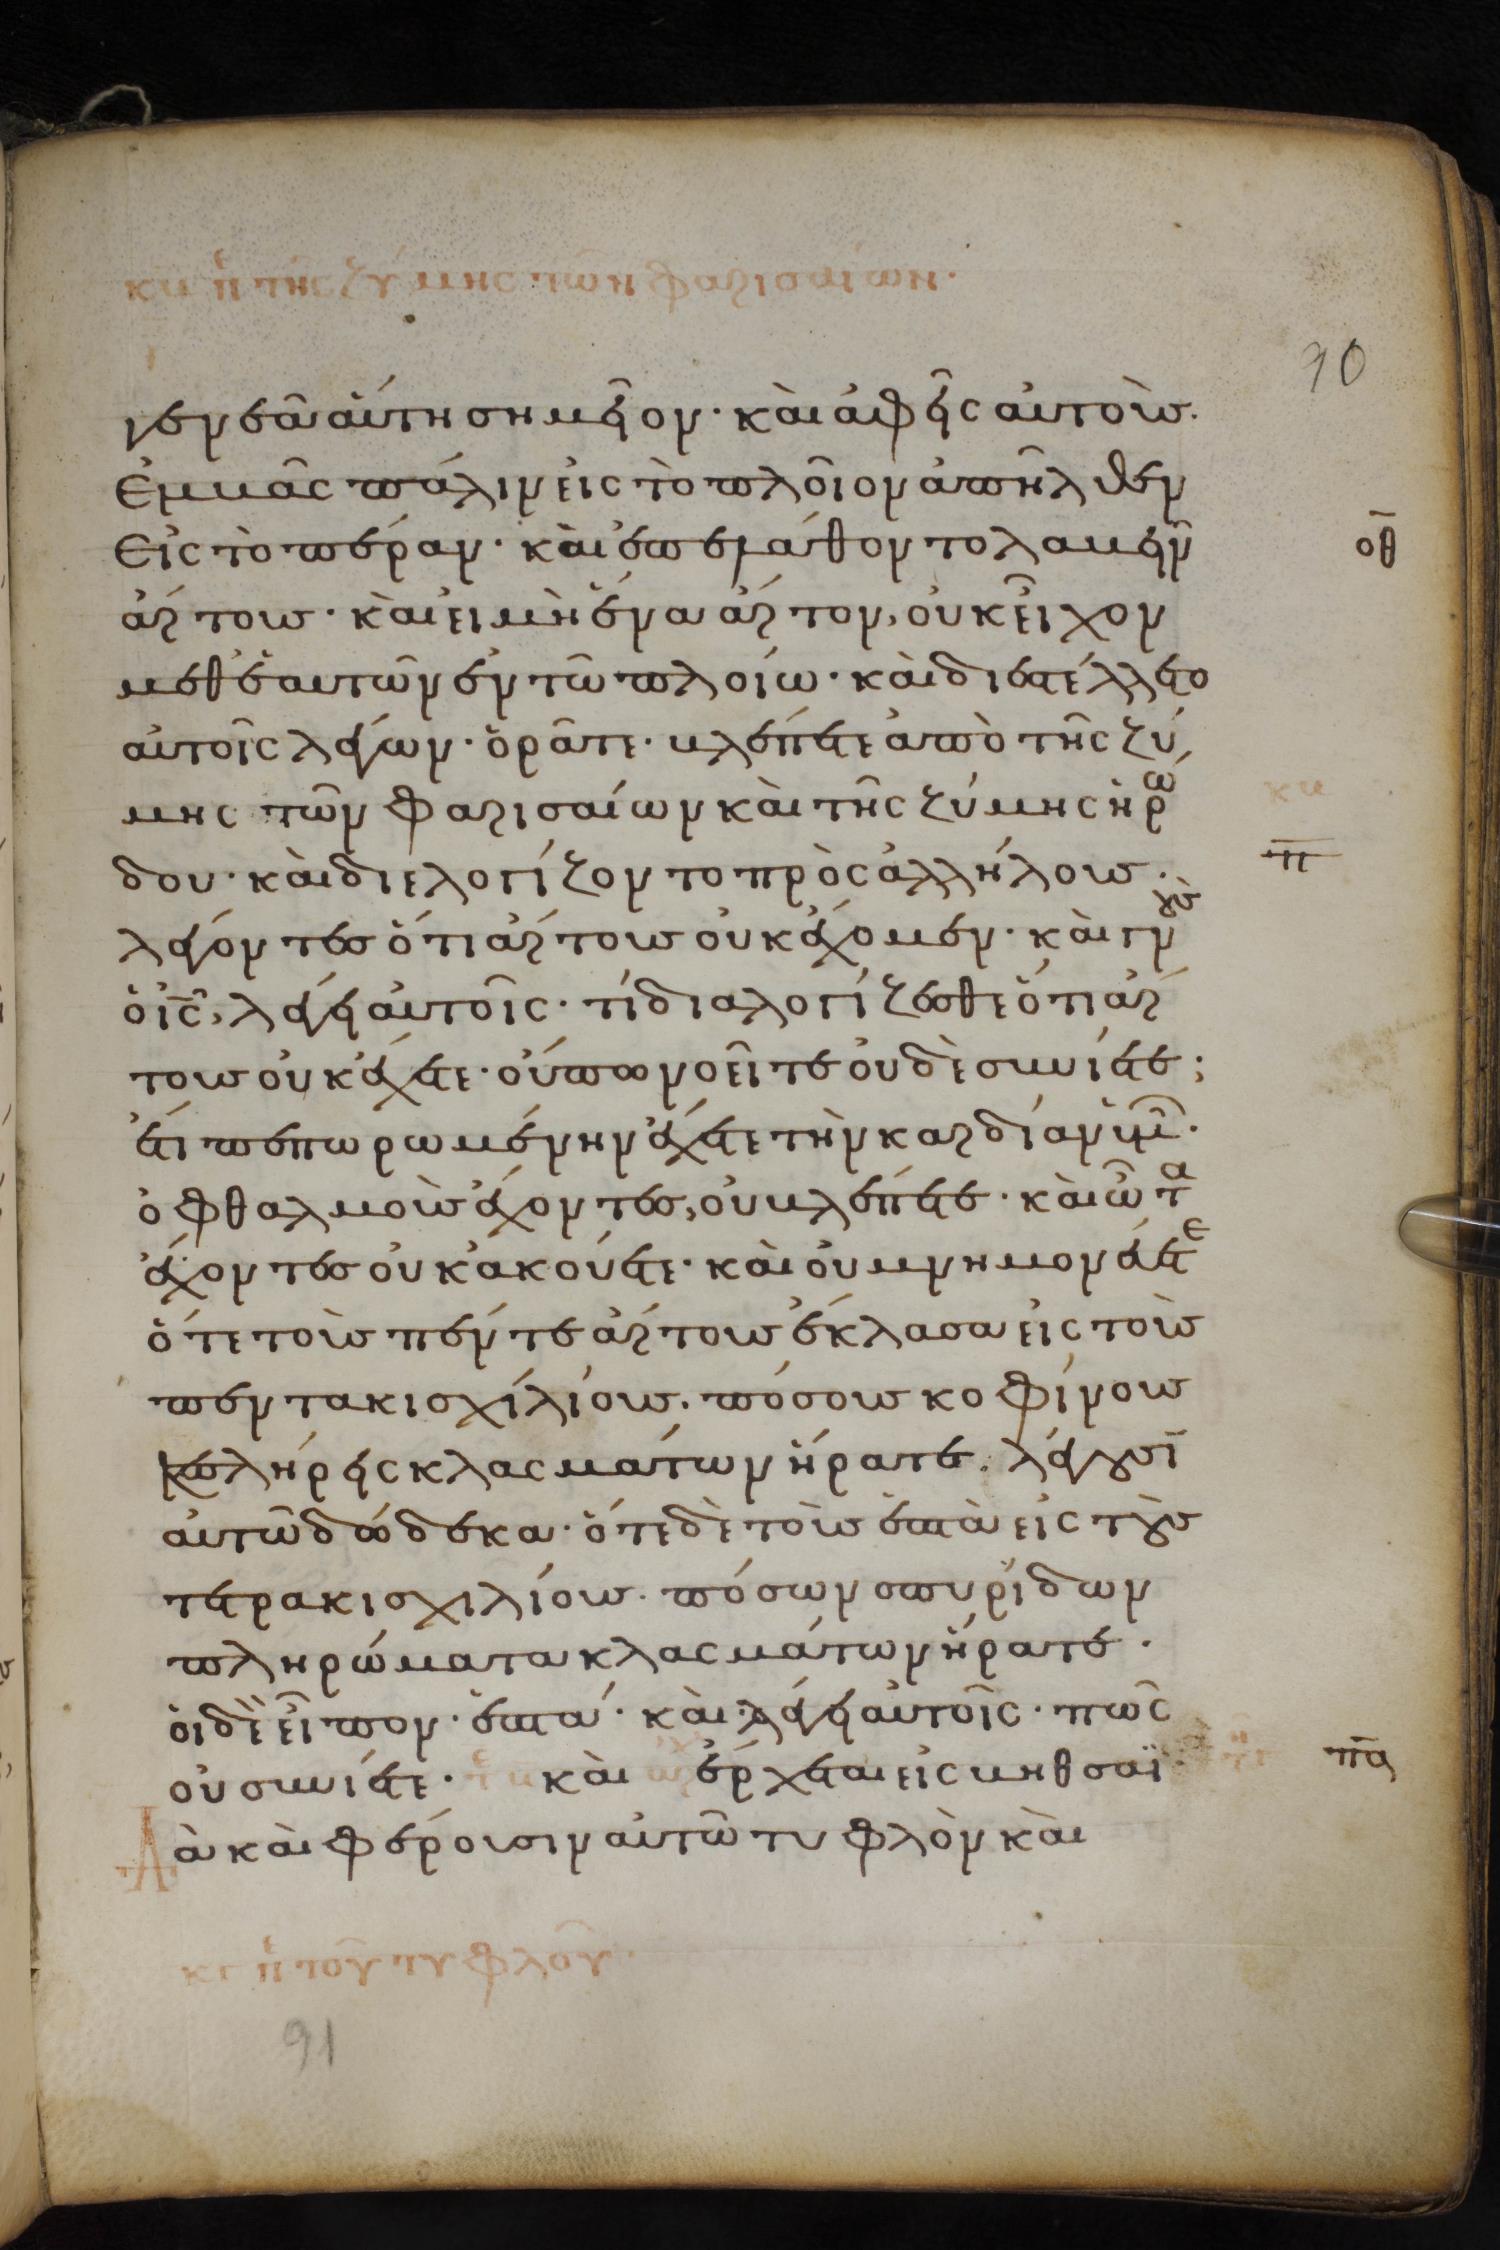 κβ πε τῆς ζύμης τῶν φαρισαίων·
90
γενεᾶ αὕτη σημεῖον· καὶ ἀφεὶς αὐτοὺς·
ἐμβὰς πάλιν εἰς τὸ πλοῖον ἀπῆλθεν
εἰς τὸ πέραν· καὶ ἐπελάθοντο λαβεῖν
οθ
ἄρτους· καὶ εἰ μὴ ἕνα ἄρτον, οὐκ εἶχον
μεθ' ἑαυτῶν ἐν τῶ πλοίω· καὶ διεστέλλετο
αὐτοῖς λέγων· ὁρᾶτε· βλέπετε ἀπὸ τῆς ζύ
μης τῶν φαρισαίων καὶ τῆς ζύμης ἡρώ
κβ
π
δου· καὶ διελογίζοντο πρὸς ἀλλήλους·
λέγοντες ὅτι ἄρτους οὐκ ἔχομεν· καὶ γνοὺς
ὁ ις, λέγει αὐτοῖς· τί διαλογίζεσθε ὅτι ἄρ
τους οὐκ ἔχετε· οὔπω νοεῖτε οὐδὲ συνίετε;
ἔτι πεπωρωμένην ἔχετε τὴν καρδίαν ὑμῶν·
ὀφθαλμοὺς ἔχοντες, οὐ βλέπετε· καὶ ὦτα
ἔχοντες οὐκ ἀκούετε· καὶ οὐ μνημονεύετε
ὅτε τοὺς πέντε ἄρτους ἔκλασα εἰς τοὺς
πεντακισχίλίους· πόσους κοφίνους
πλήρεις κλασμάτων ἤρατε· λέγουσι
αὐτῶ δώδεκα· ὅτε δὲ τοὺς ἑπτὰ εἰς τοὺς
τετρακισχιλίους· πόσων σπυρίδων
πληρώματα κλασμάτων ἤρατε·
οἱ δὲ εἶπον· ἑπτά· καὶ λέγει αὐτοῖς· πῶς
οὐ συνίετε· καὶ ἔρχεται εἰς βηθσαϊ
πα
δὰ καὶ φέρουσιν αὐτῶ τυφλὸν καὶ
κγ πε τοῦ τυφλοῦ·
91